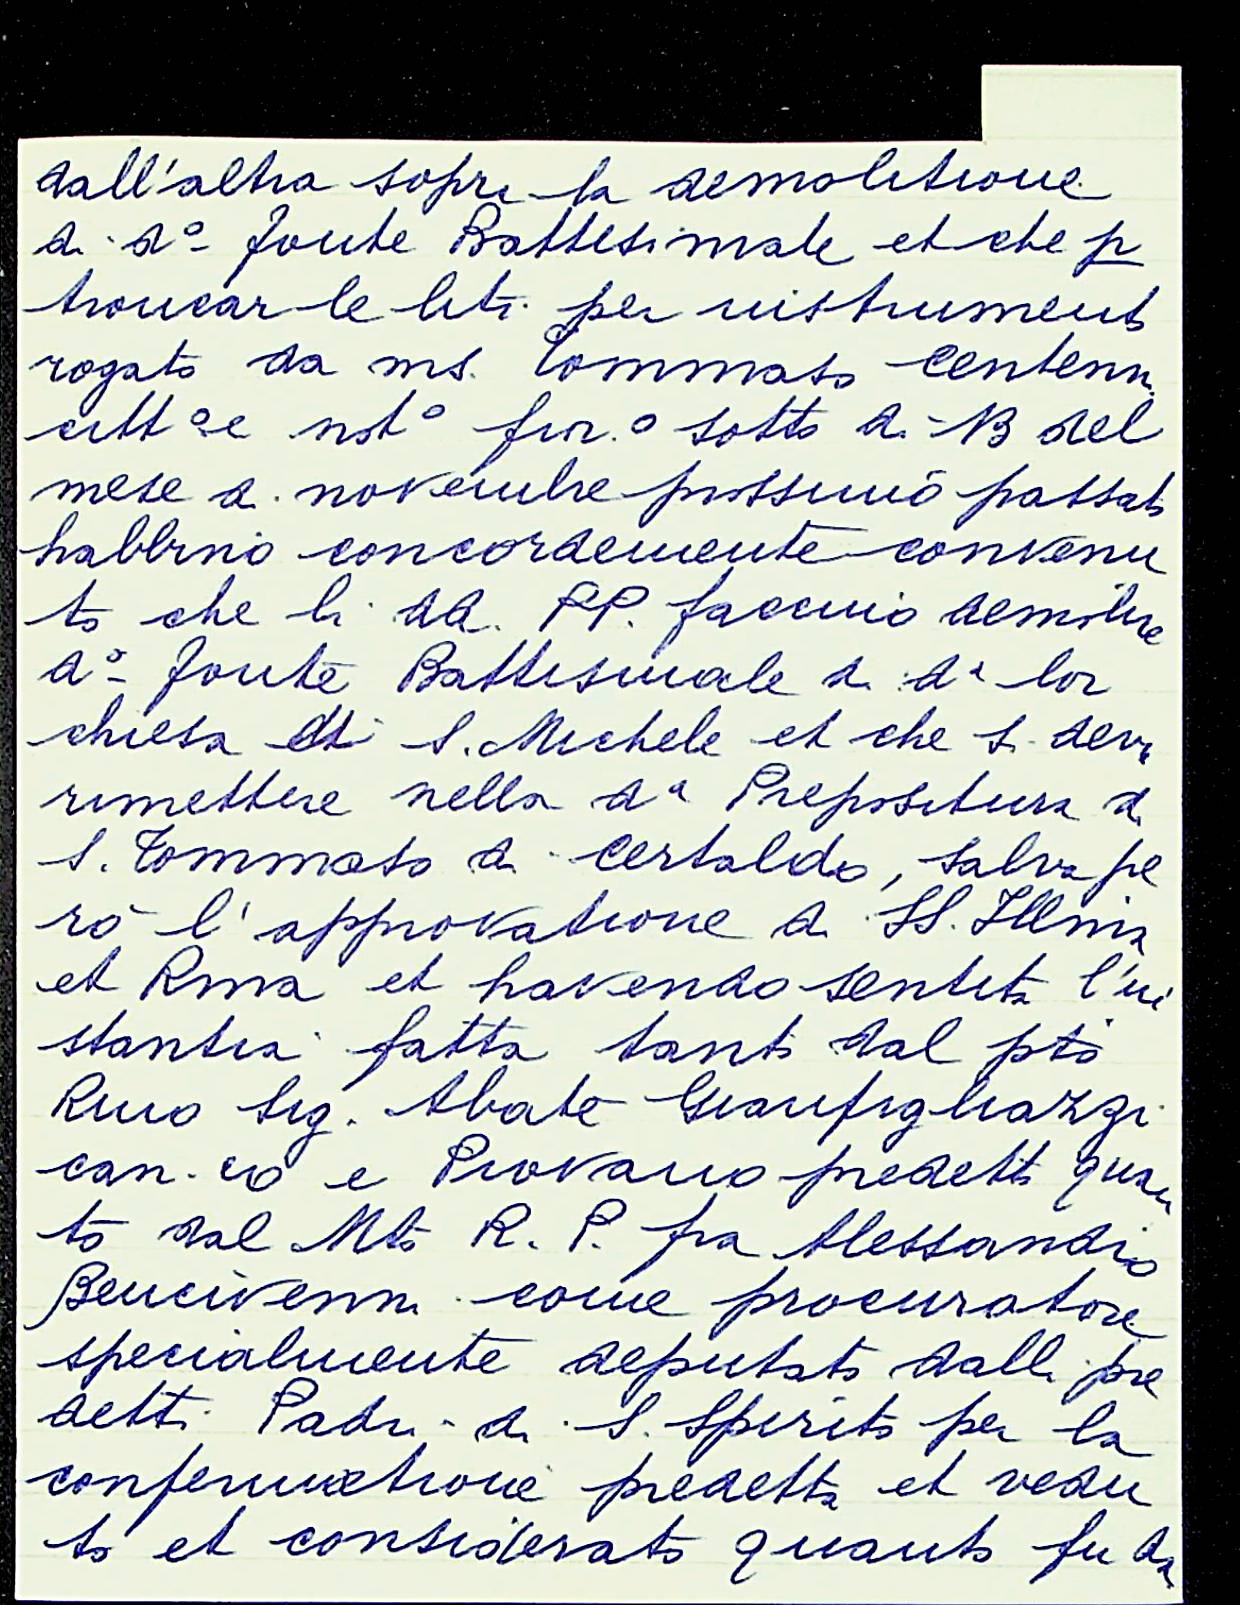 dall'altra sopra la demolitione
di d.º fonte Battesimale et che p
troncar le liti per instrumento
rogato da ms. Tommaso Centenni
citt.º e not.º fior.º sotto di 13 del
mese di novembre prossimo passato
habbino concordemente convenu
to che li dd. PP. faccino demolire
d.º fonte Battesimale di d.ª lor
chiesa di S. Michele et che si deva
rimettere nella d.ª Prepositura di
S. Tommaso di Certaldo, salva pe
rò l'approvatione di SS. Illma
et Rma et havendo sentita l'in
stantia fatta tanto dal pto
Rmo Sig. Abate Gianfigliazzi
can.co e Piovano predetto quan
to dal Mto R. P. fra Alessandro
Bencivenni come procuratore
specialmente deputato dalli pre
detti Padri di S. Spirito per la
confermatione predetta et vedu
to et considerato quanto fu da